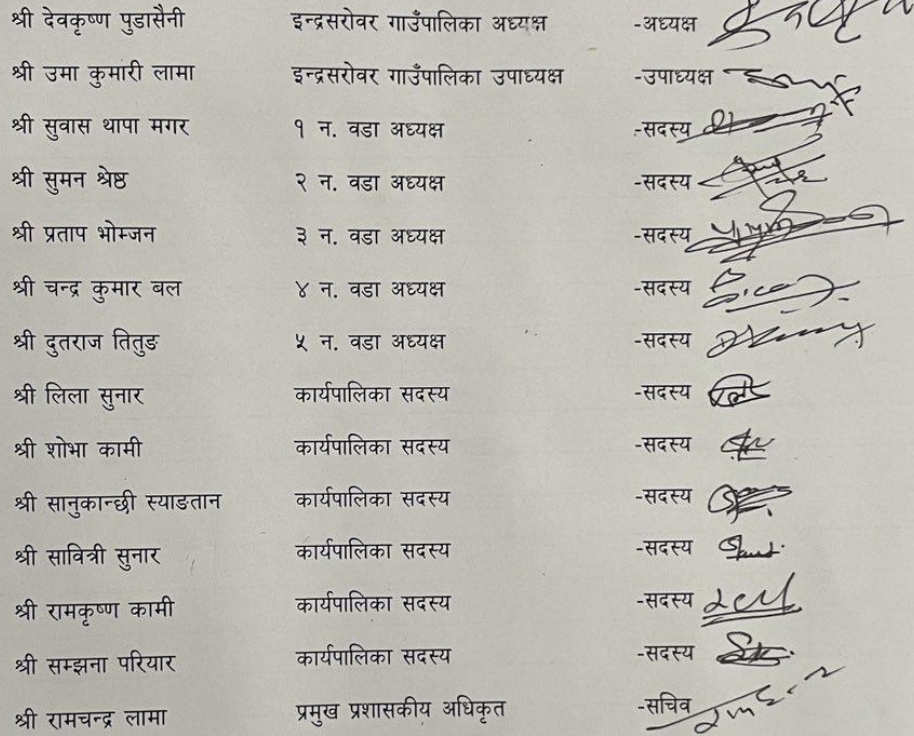 श्री देवकृष्ण पुडासैनी इन्द्रसरोवर गाउँपालिका अध्यक्ष -अध्यक्ष
श्री उमा कुमारी लामा इन्द्रसरोवर गाउँपालिका उपाध्यक्ष -उपाध्यक्ष
श्री सुवास थापा मगर १ न. वडा अध्यक्ष -सदस्य
श्री सुमन श्रेष्ठ २ न. वडा अध्यक्ष -सदस्य
श्री प्रताप भोम्जन ३ न. वडा अध्यक्ष -सदस्य
श्री चन्द्र कुमार बल ४ न. वडा अध्यक्ष -सदस्य
श्री दुतराज तितुङ ५ न. वडा अध्यक्ष -सदस्य
श्री लिला सुनार कार्यपालिका सदस्य -सदस्य
श्री शोभा कामी कार्यपालिका सदस्य -सदस्य
श्री सानुकान्छी स्याङतान कार्यपालिका सदस्य -सदस्य
श्री सावित्री सुनार कार्यपालिका सदस्य -सदस्य
श्री रामकृष्ण कामी कार्यपालिका सदस्य -सदस्य
श्री सम्झना परियार कार्यपालिका सदस्य -सदस्य
श्री रामचन्द्र लामा प्रमुख प्रशासकीय अधिकृत -सचिव